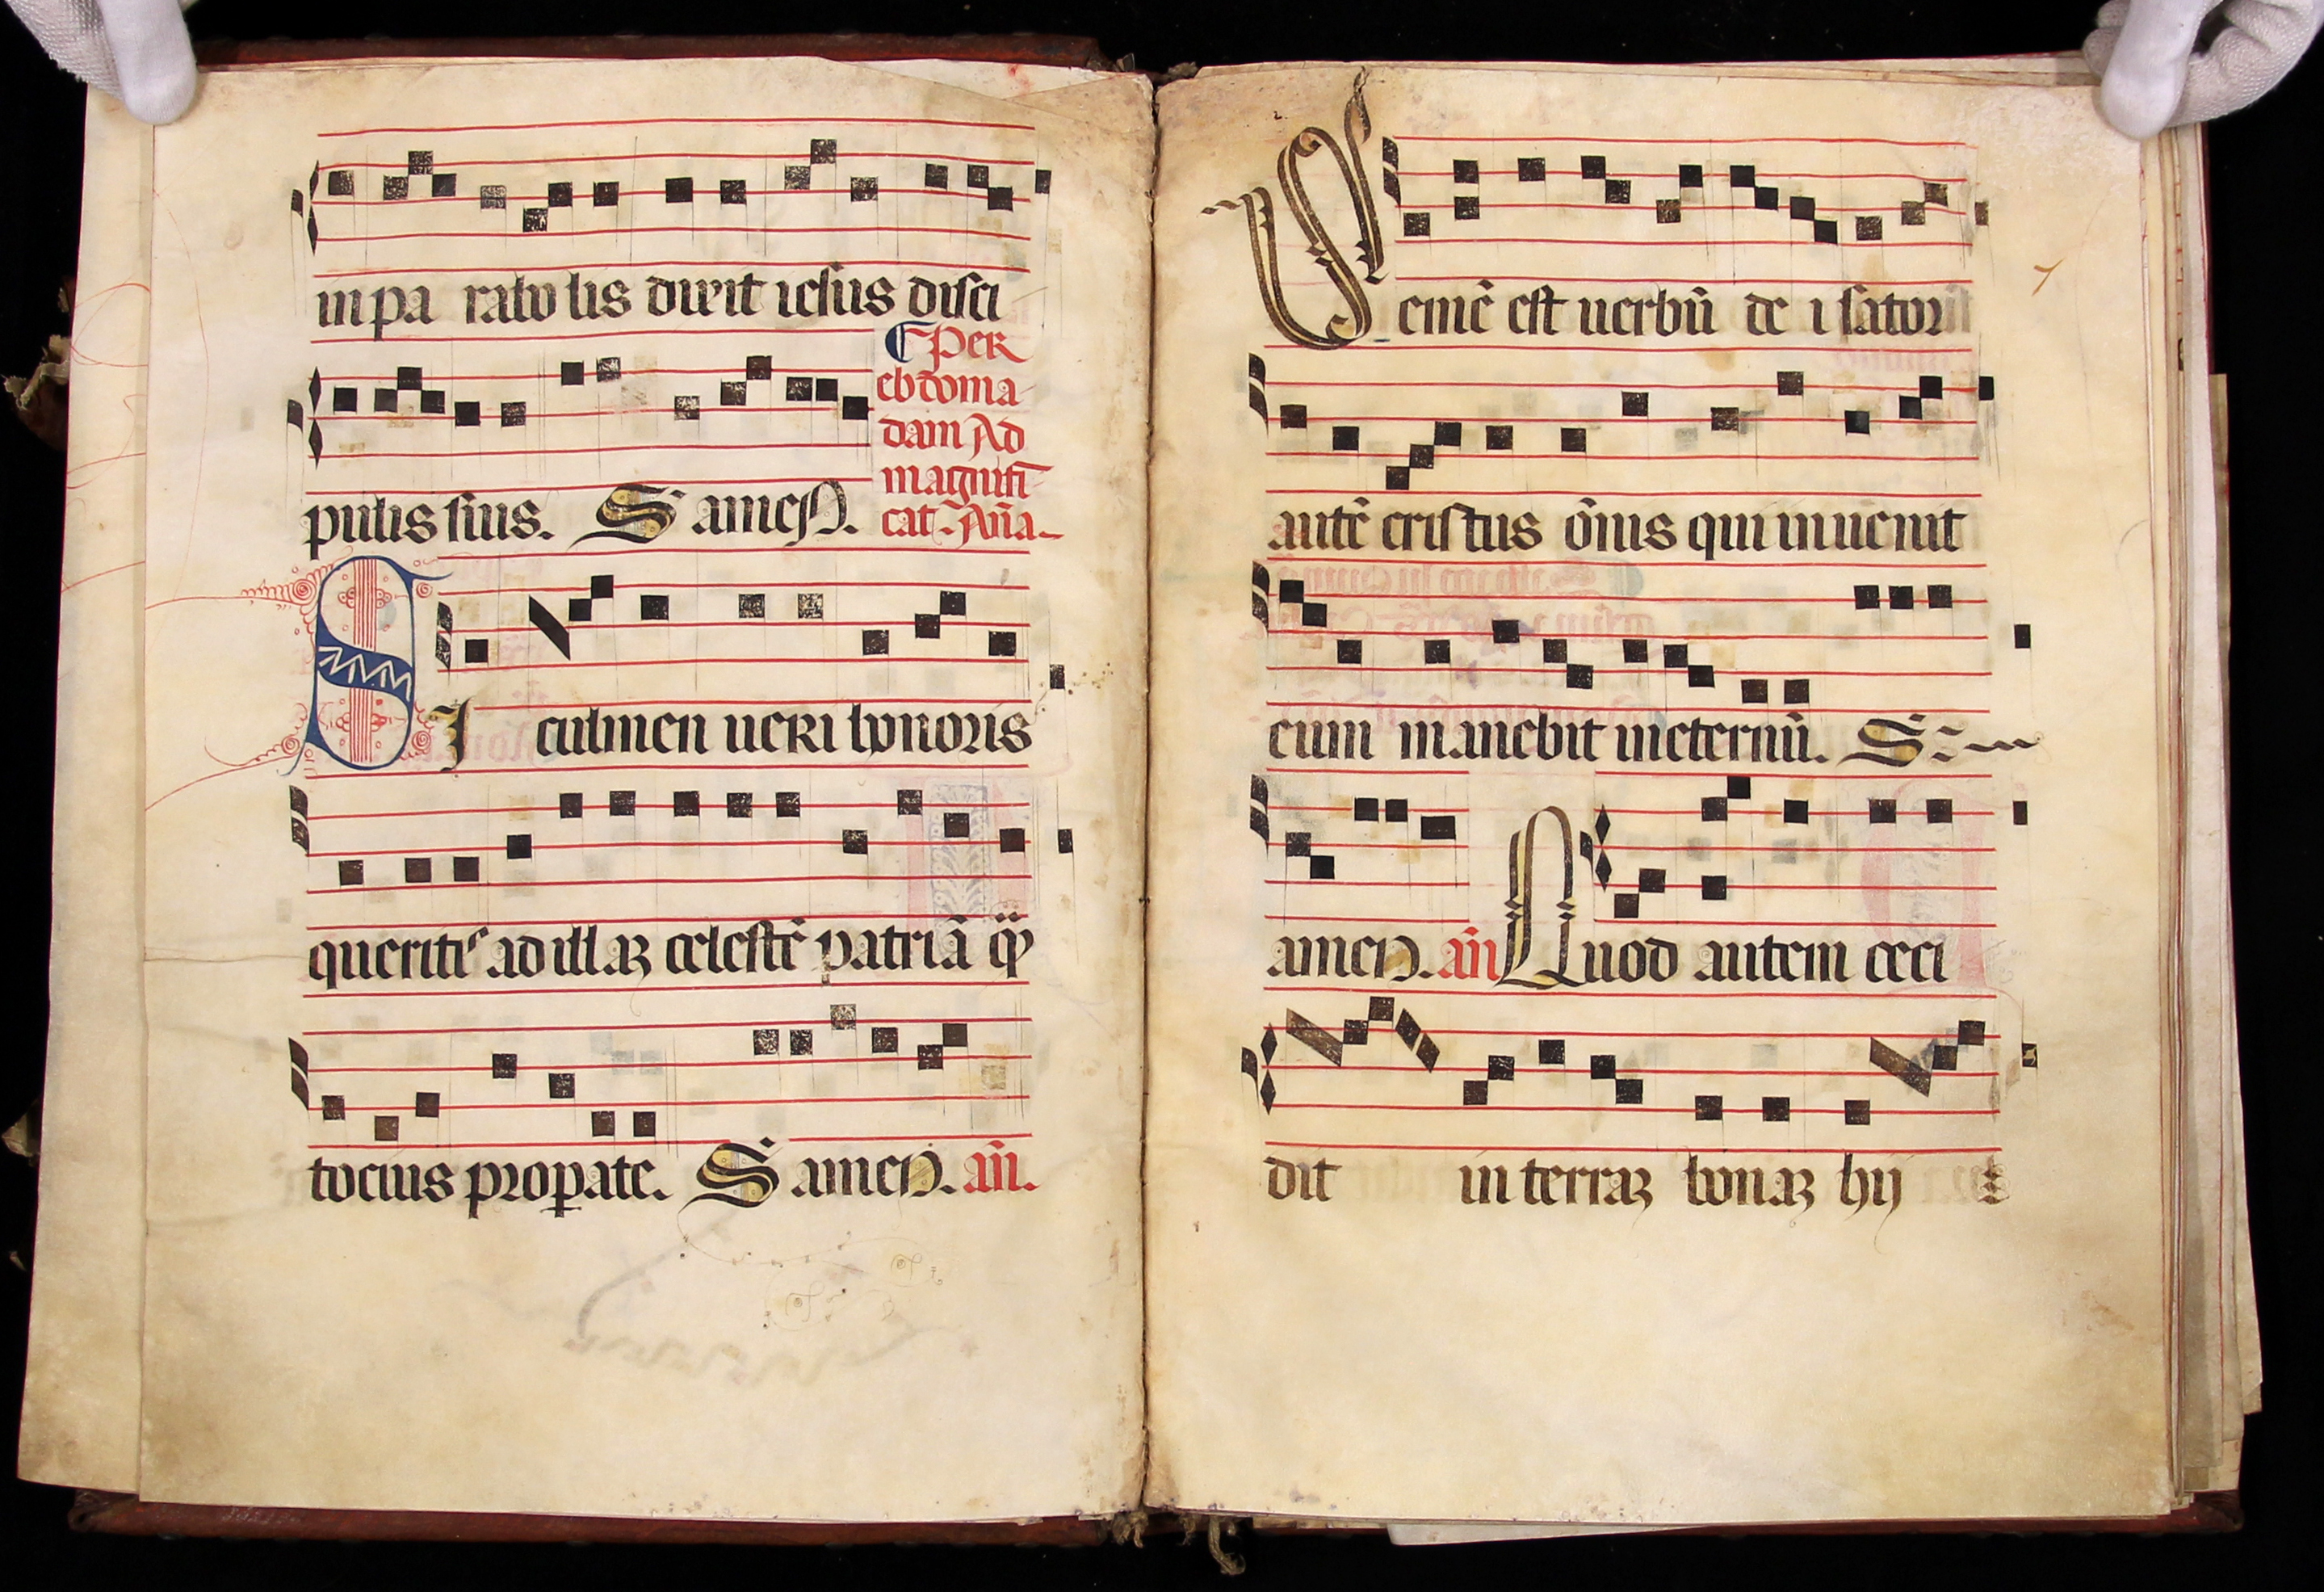 in pa rabo lis dixit iesus disci
pulis suis. S amen.
¶Per
ebdoma
dam Ad
magnifi
cat. Aña.
SI culmen ueri honoris
queritis ad illaꝫ celestē patriā
tocius properate. S amen. añ.
Semē est uerbū de i sator
autē cristus ōnis qui inuenit
eum manebit in eternū. S
amen. añ Quod autem ceci
dit in terraꝫ bonaꝫ hij